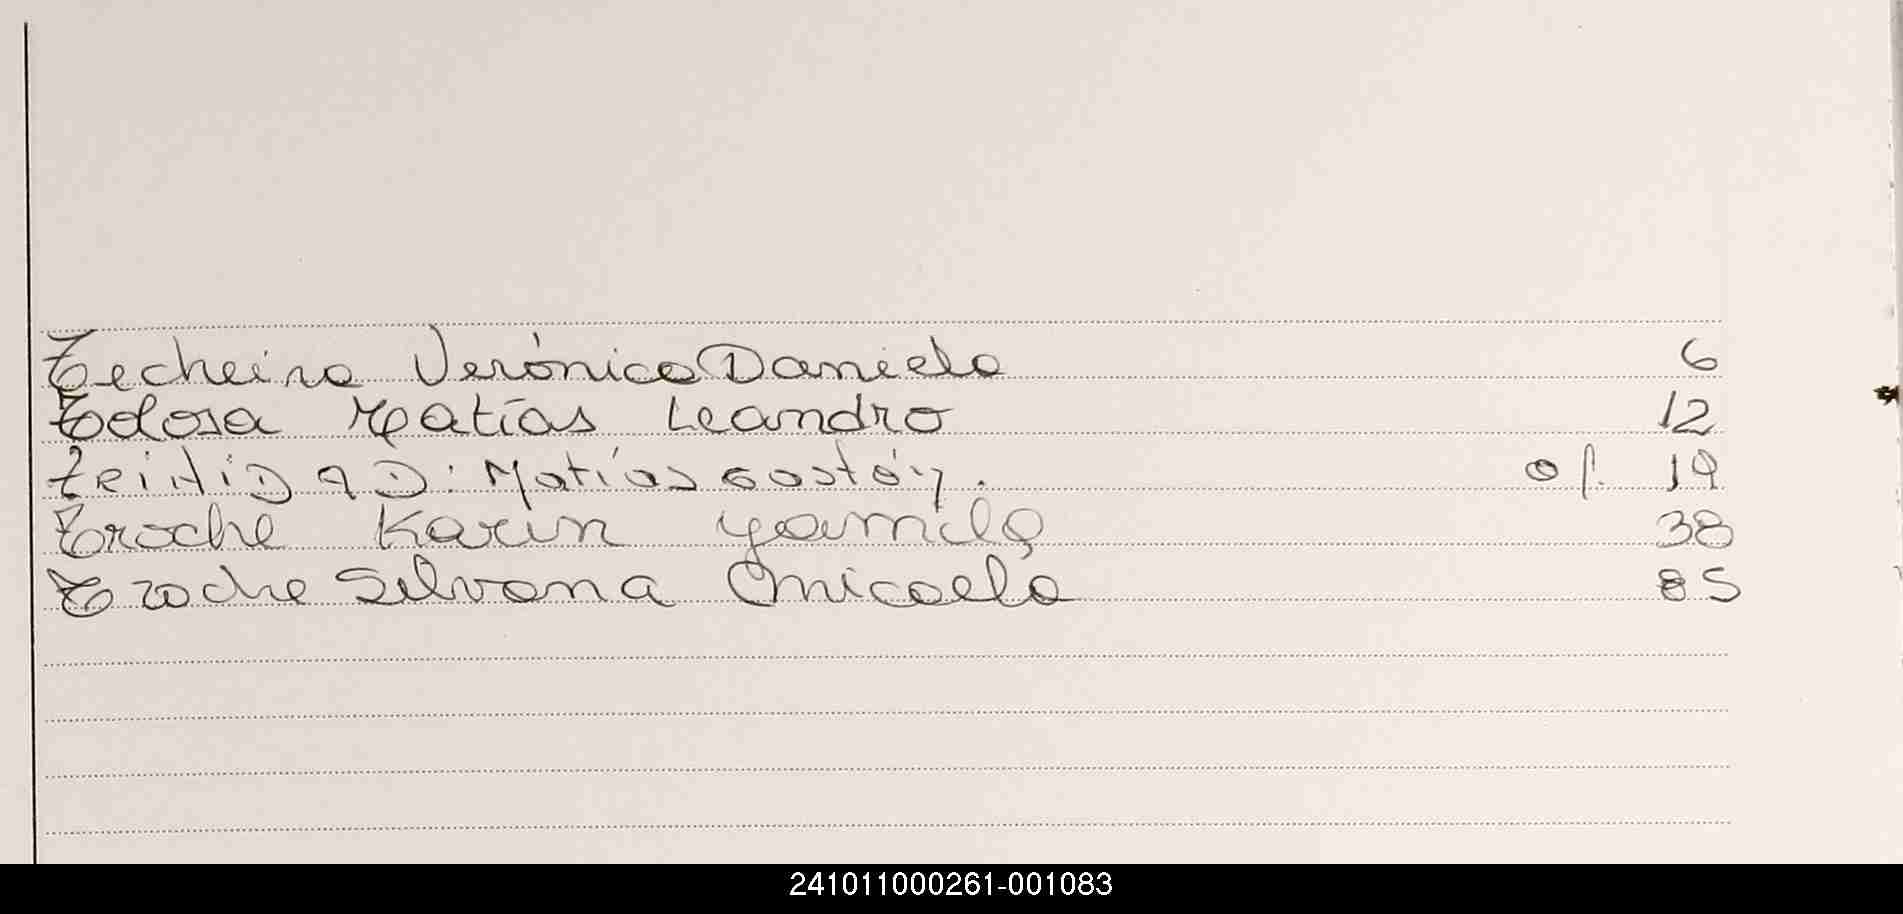 Techeira Verónica Daniela 6
Tolosa Matías Leandro 12
Matías Gastón. of. 19
Troche Karin Yamila 38
Troche Silvana Micaela 85
241011000261-001083